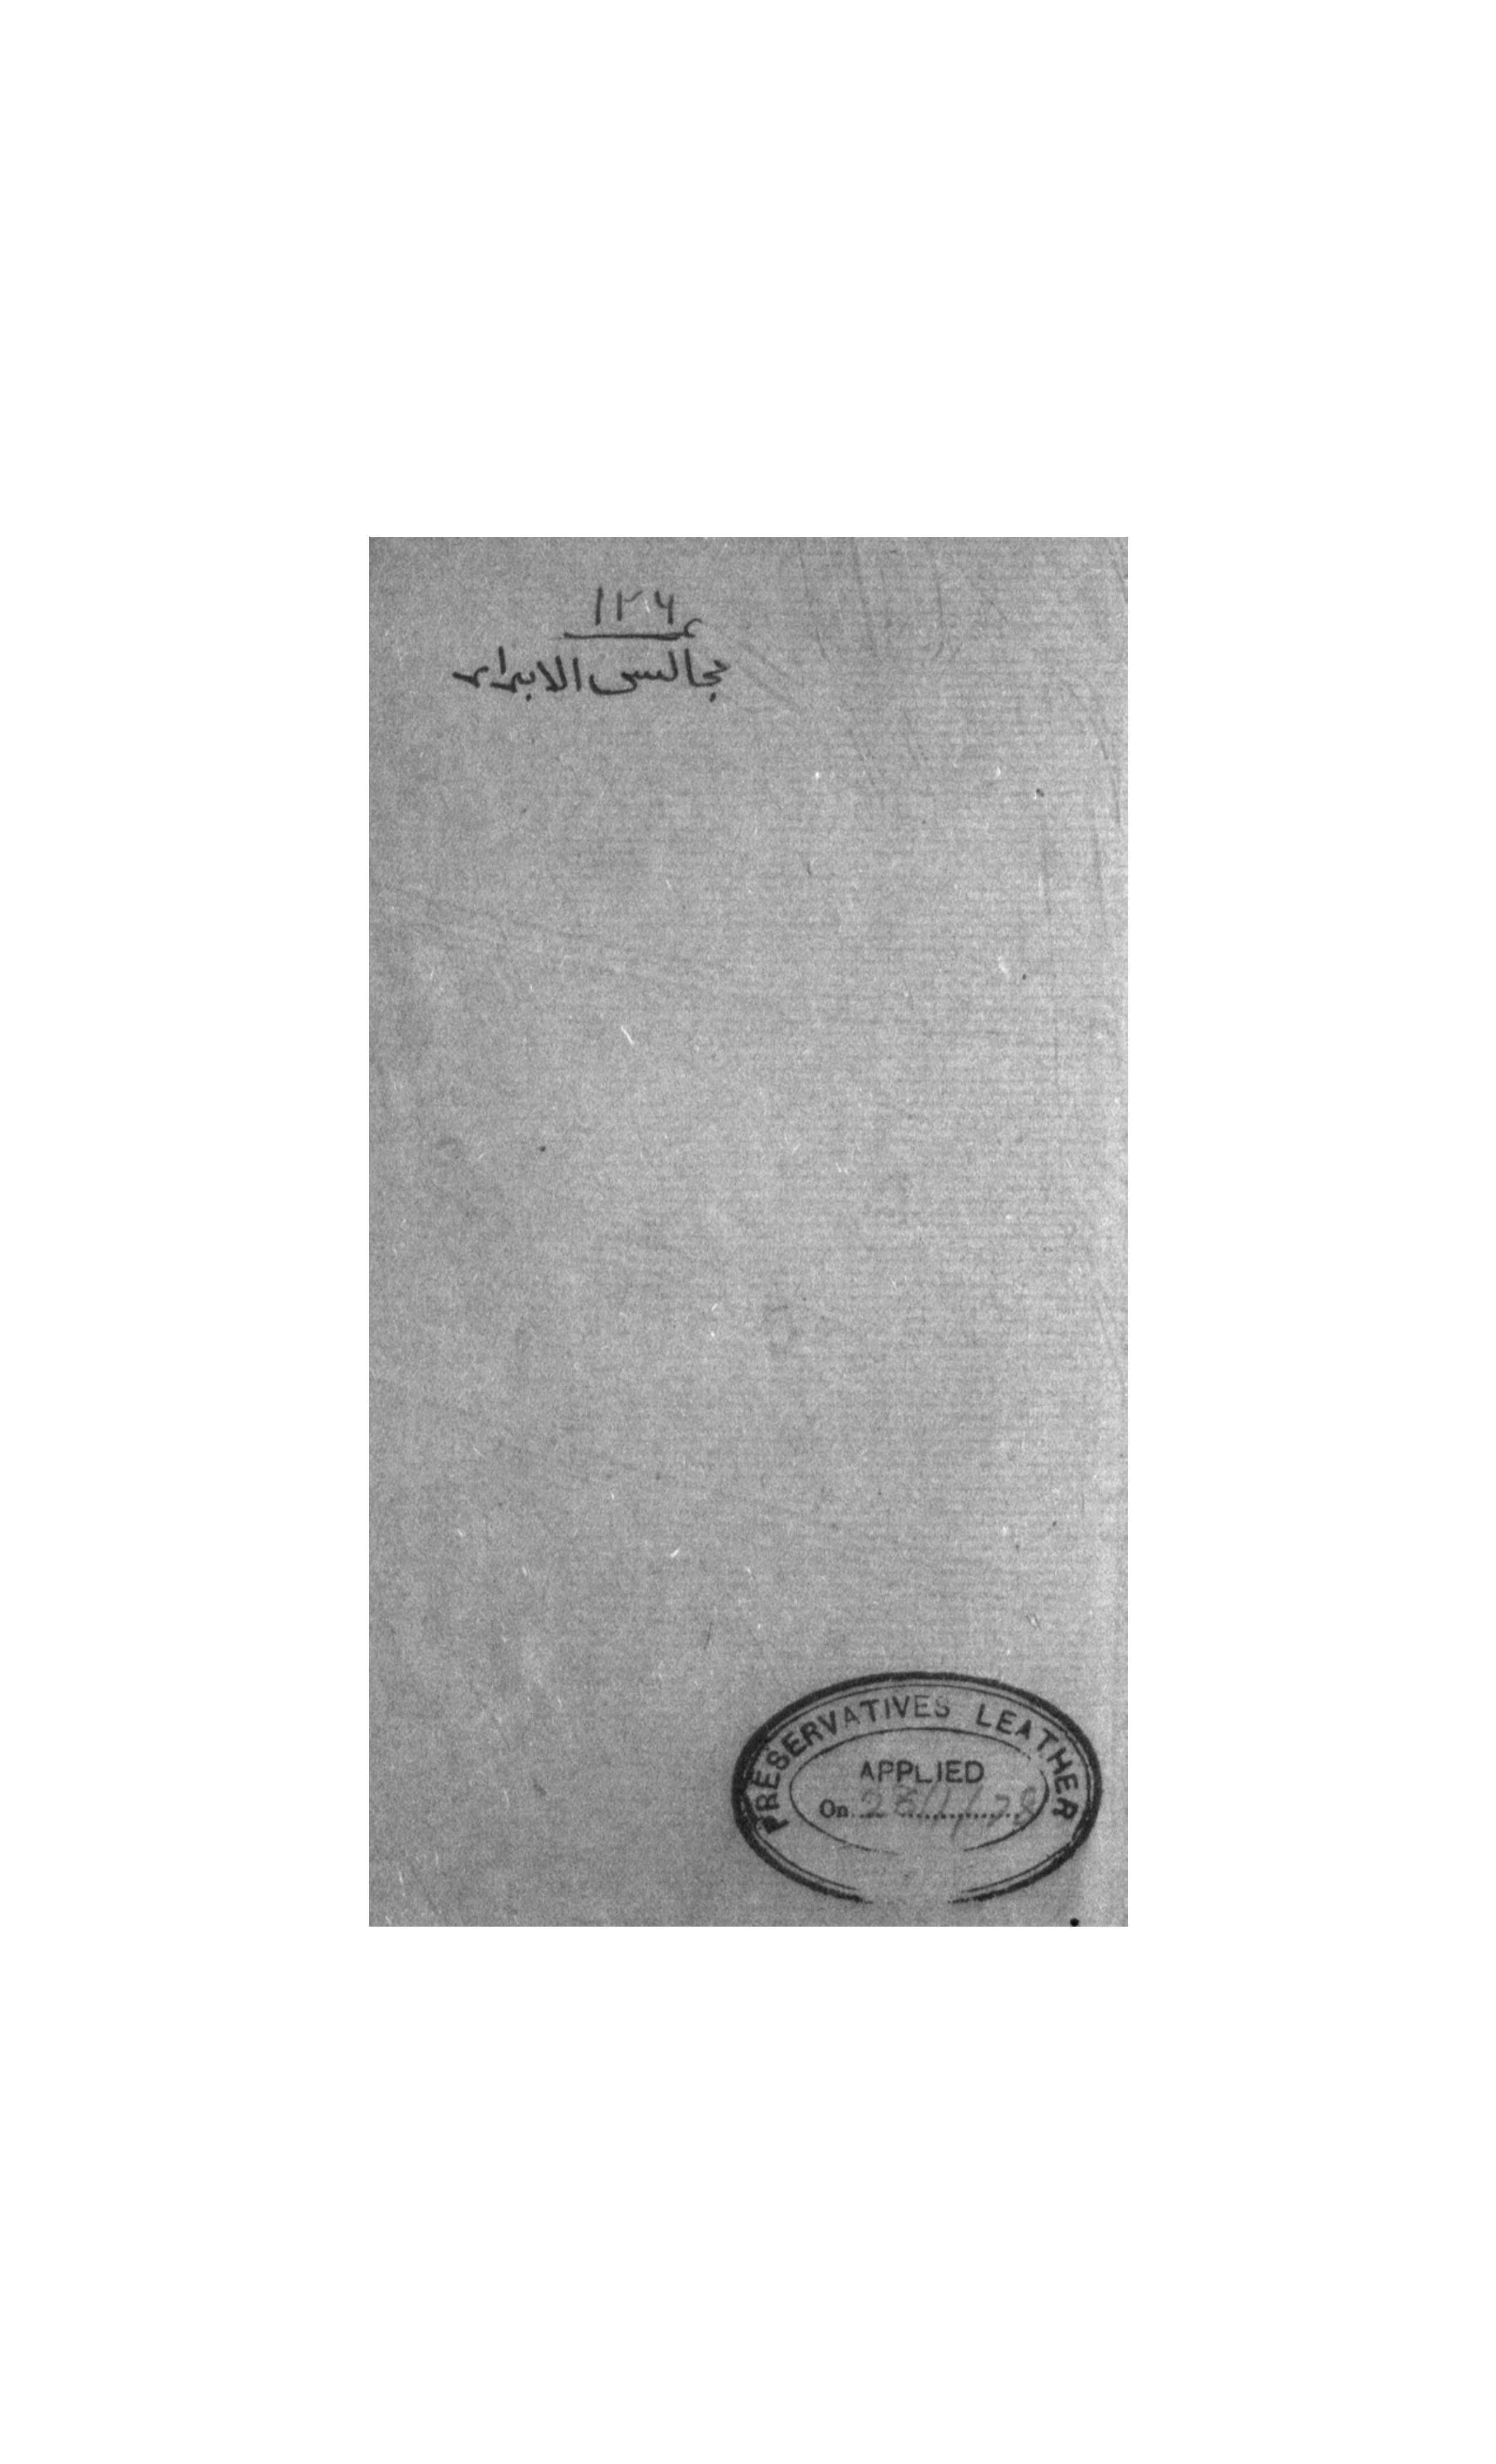 ١٢٦
مجالس الابرار
PRESERVATIVES LEATHER
APPLIED
On 23/1/78